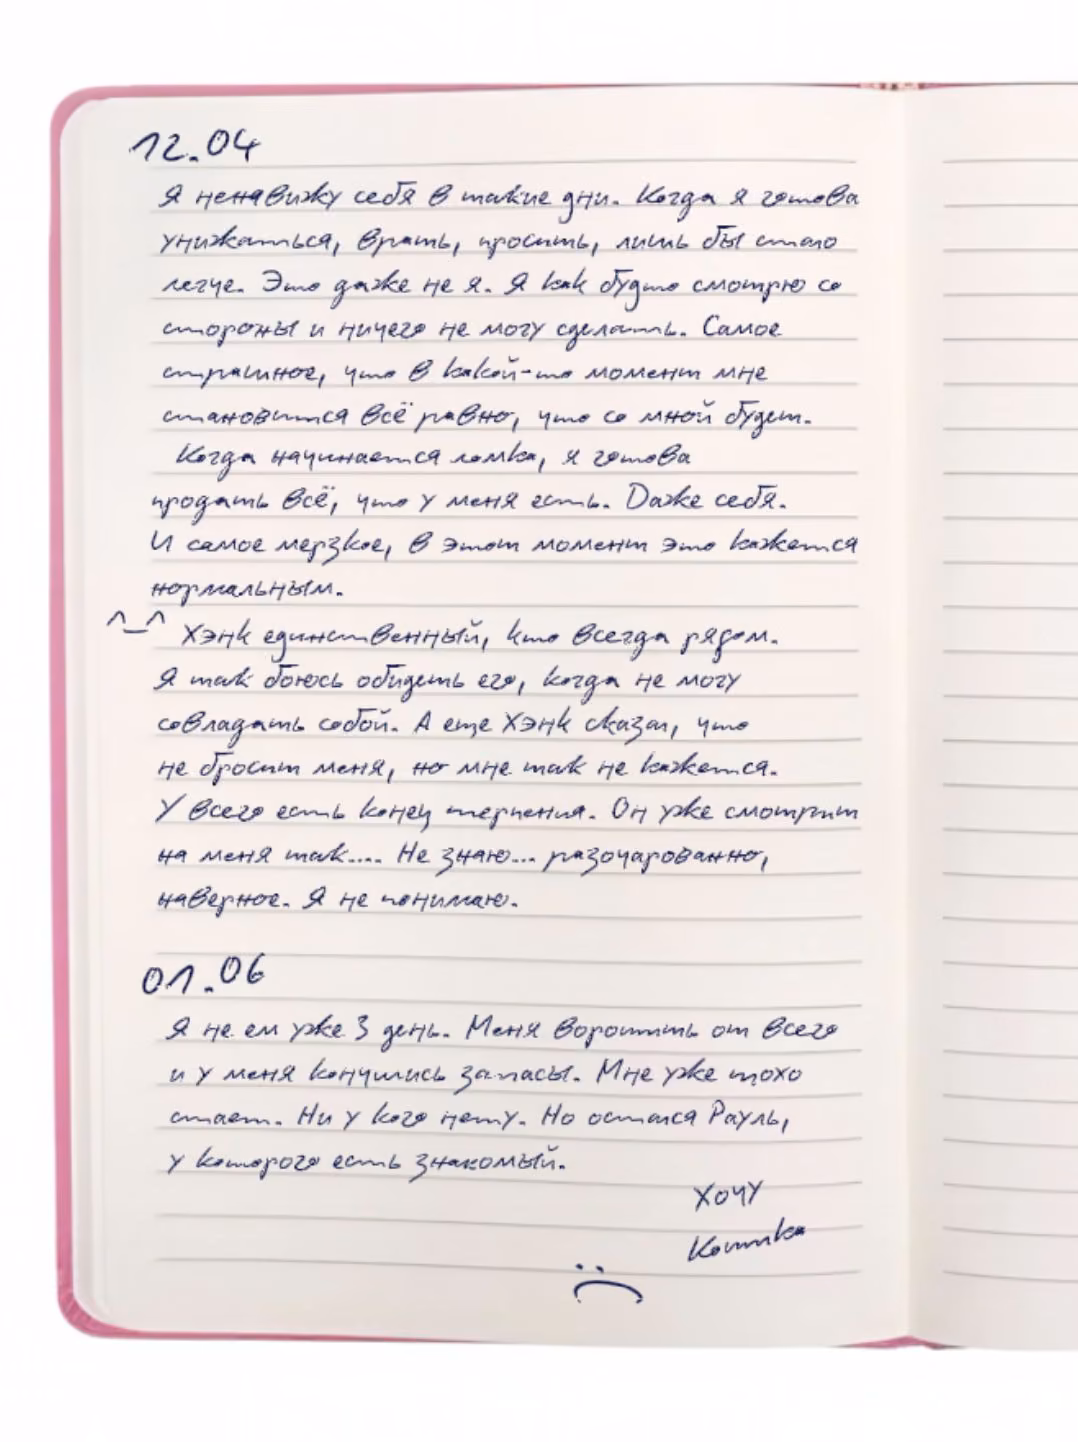 12.04
Я ненавижу себя в такие дни. Когда я готова
унижаться, врать, просить, лишь бы стало
легче. Это даже не я. Я как будто смотрю со
стороны и ничего не могу сделать. Самое
страшное, что в какой-то момент мне
становится всё равно, что со мной будет.
Когда начинается ломка, я готова
продать всё, что у меня есть. Даже себя.
И самое мерзкое, в этот момент это кажется
нормальным.
^_^ Хэнк единственный, кто всегда рядом.
Я так боюсь обидеть его, когда не могу
совладать собой. А еще Хэнк сказал, что
не бросит меня, но мне так не кажется.
У всего есть конец терпения. Он уже смотрит
на меня так.... Не знаю... разочарованно,
наверное. Я не понимаю.
01.06
Я не ем уже 3 день. Меня воротить от всего
и у меня кончились запасы. Мне уже плохо
стает. Ни у кого нету. Но остался Рауль,
у которого есть знакомый.
хочу
Котика
:(